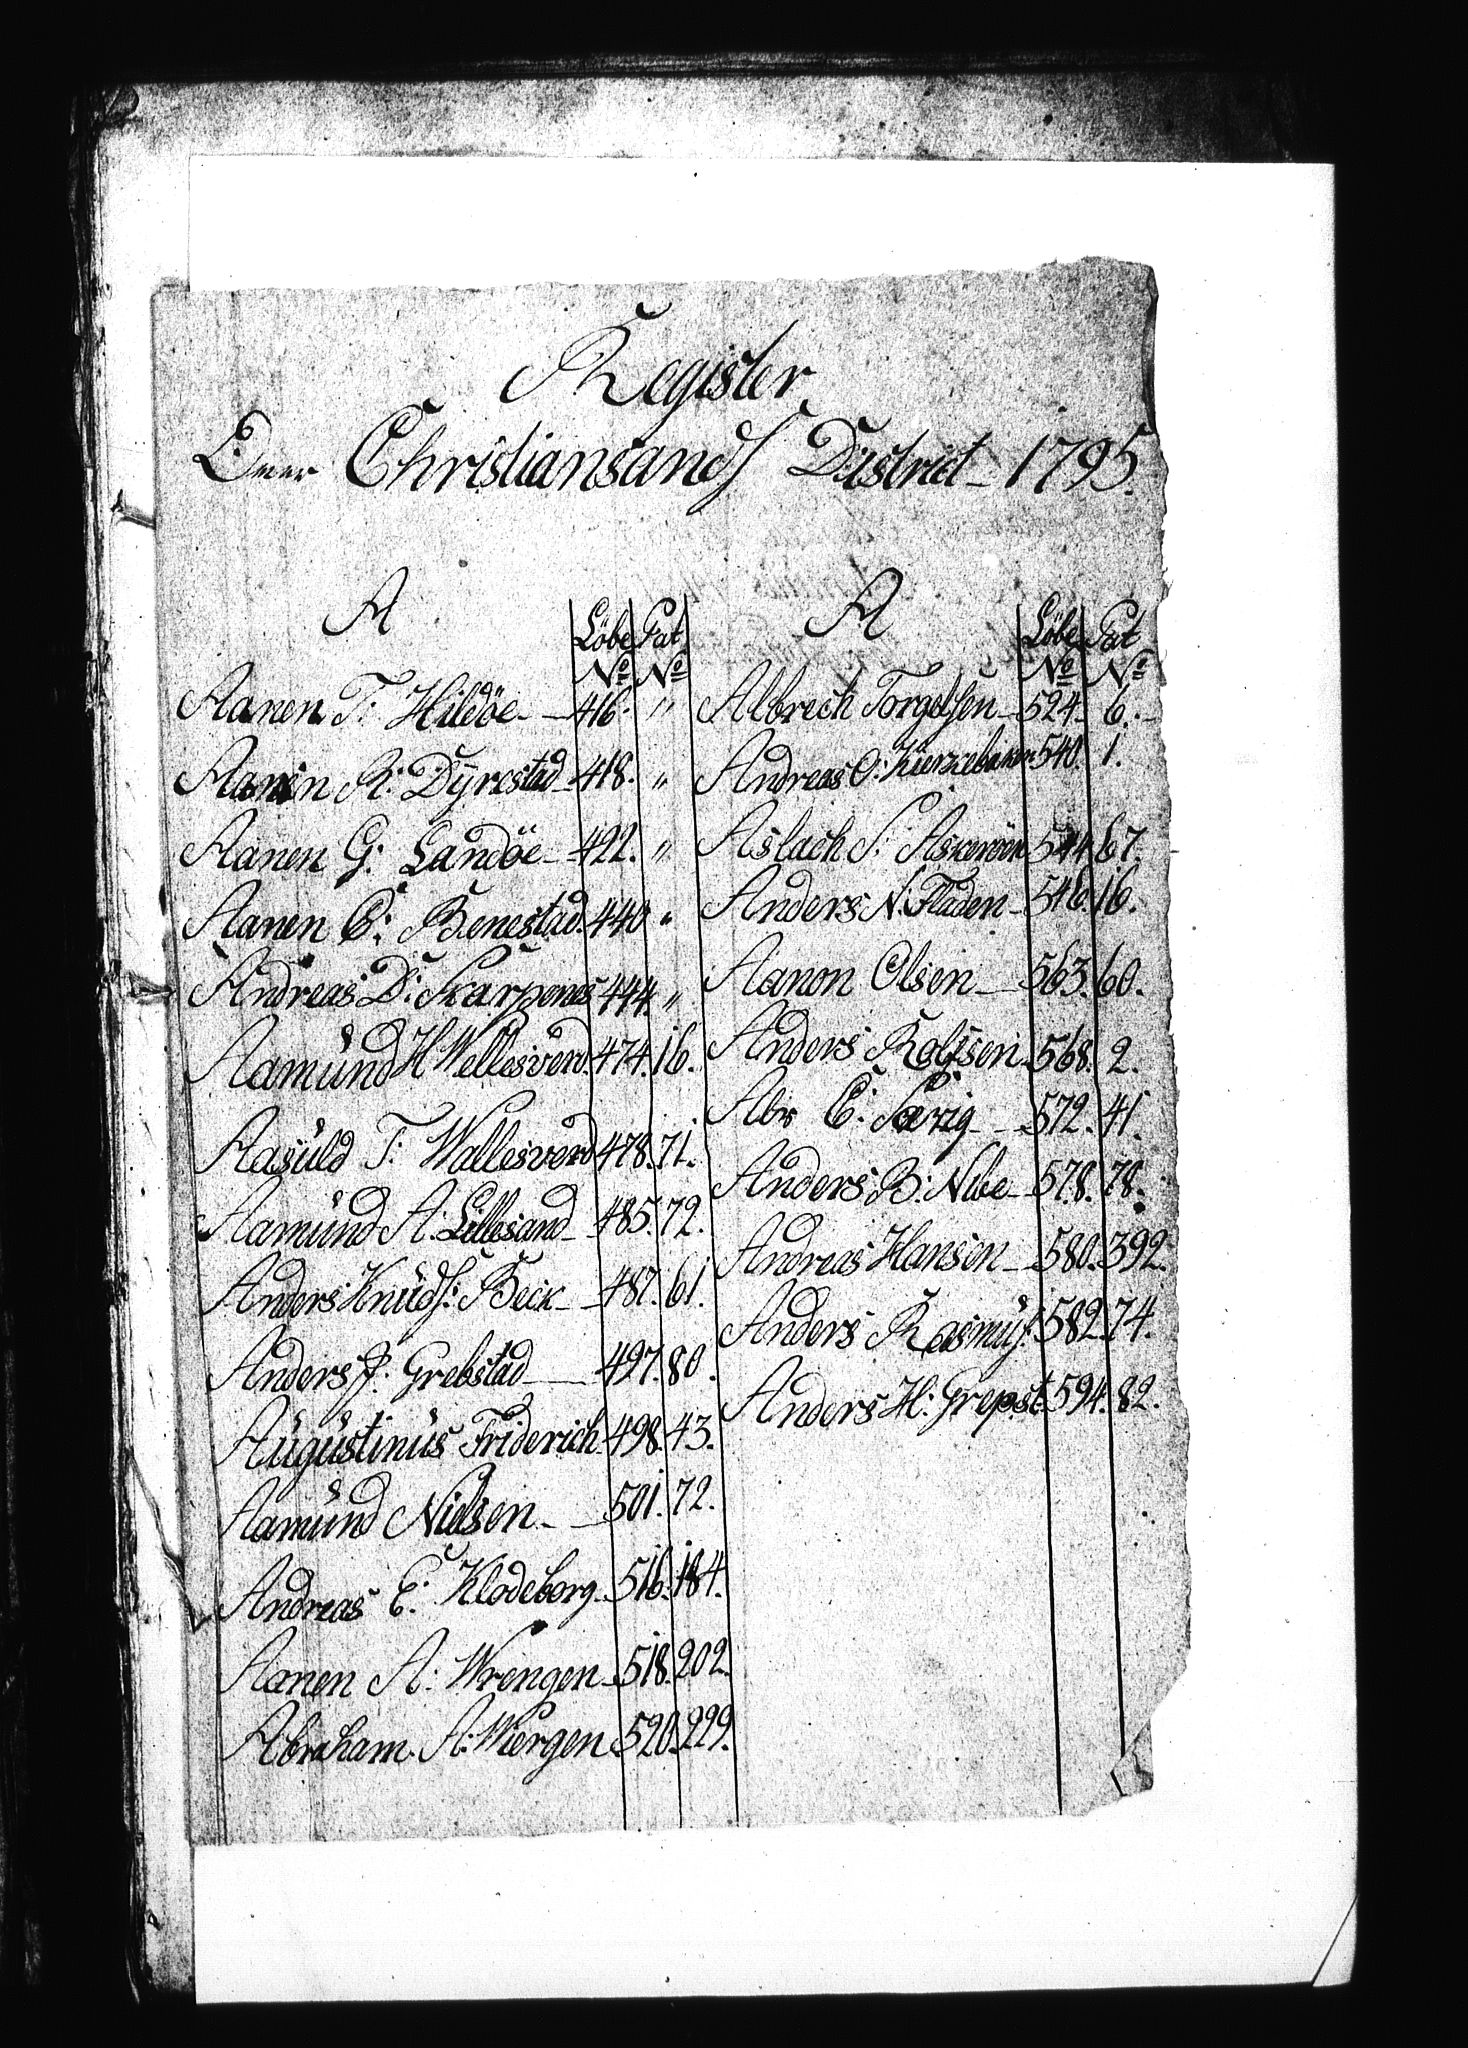 Register
Over Christiansands District 1795.
A
Löbe No Pat No
Aanen T: Hildöe 416. "
Aanen R: Dÿrestad 418. "
Aanen G: Landöe 422. "
Aanen C: Benestad 440 "
Andreas D: Skarpenes 444. "
Aamünd H Wellesverd 474. 16.
Aasüld T: Wallesverd 478. 71.
Aamünd A: Lillesand 485. 72.
Anders Knüds: Beck 487. 61.
Anders P: Grebstad 497. 80.
Aügüstinüs Friderich 498. 43.
Aamünd Nielsen 501. 72.
Andreas E: Klodeborg 516. 184.
Aanen A: Wrengen 518. 202.
Abraham A: Wiergen 520. 229.
A
Löbe No Pat No
Albrech Torgelsen 524. 6.
Andreas O: 540. 1.
Aslach S: Askeröen 544. 67.
Anders N: Fladen 546. 16.
Aanon Olsen 563. 60.
Anders Rolfsen 568. 2.
Abr C: Særig 572. 41.
Anders B: Nibe 578. 78.
Andreas Hansen 580. 392.
Anders Rasmüs: 582. 74.
Anders H: Grepst 594. 82.